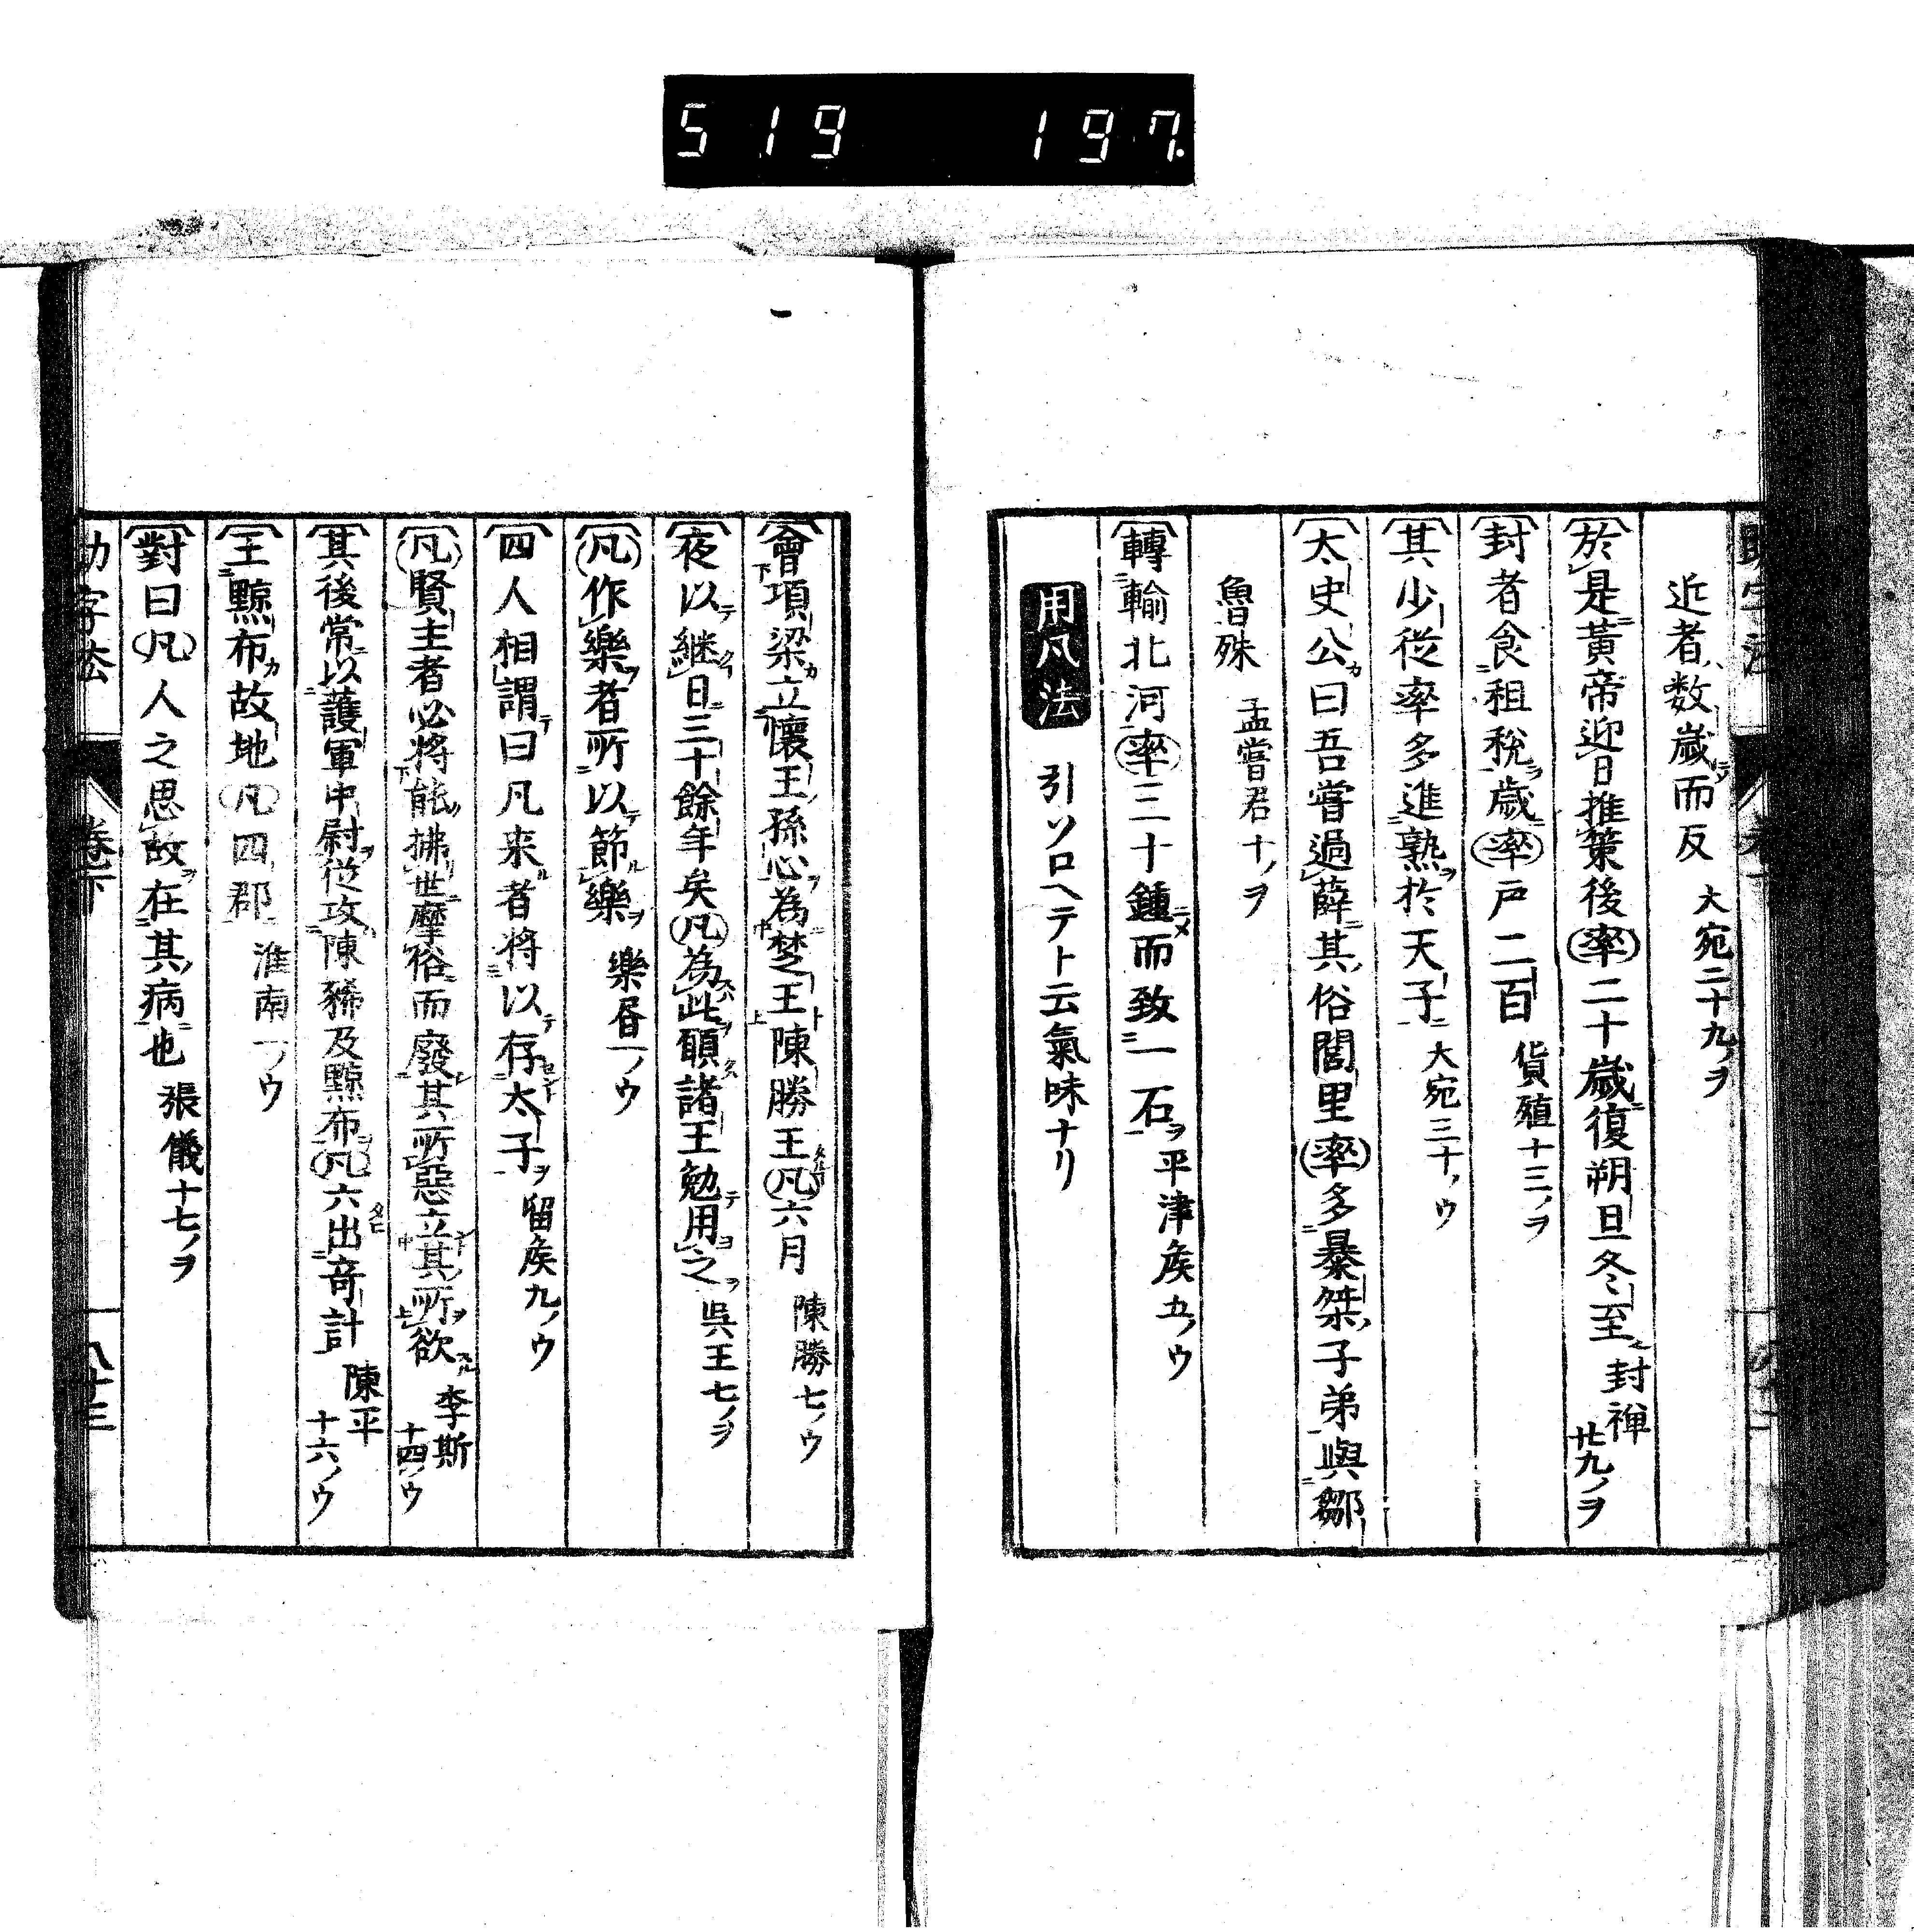 519 197
近者数歳而反 大宛二十九ノヲ
於是黄帝迎日推策後率二十歳復朔旦冬至 封禅廿九ノヲ
封者食租税歳率戸二百 貨殖十三ノヲ
其少従率多進熟於天子 大宛三十ノウ
太史公曰吾嘗過薛其俗閭里率多暴桀子弟與鄒
魯殊 孟嘗君十ノヲ
轉輸北河率三十鍾而致一石 平津侯五ノウ
用凡法 引ソロヘテト云氣味ナリ
會項梁立懐王孫心為楚王陳勝王凡六月 陳勝七ノウ
夜以継日三十餘年矣凡為此願諸王勉用之 呉王七ノヲ
凡作樂者所以節樂 樂書一ノウ
四人相謂曰凡来者将以存太子 留侯九ノウ
凡賢主者必将能拂世摩俗而廢其所惡立其所欲 李斯十四ノウ
其後常以護軍中尉従攻陳豨及黥布凡六出奇計 陳平十六ノウ
王黥布故地凡四郡 淮南一ノウ
對曰凡人之思故在其病也 張儀十七ノヲ
助字法 卷下 八十三